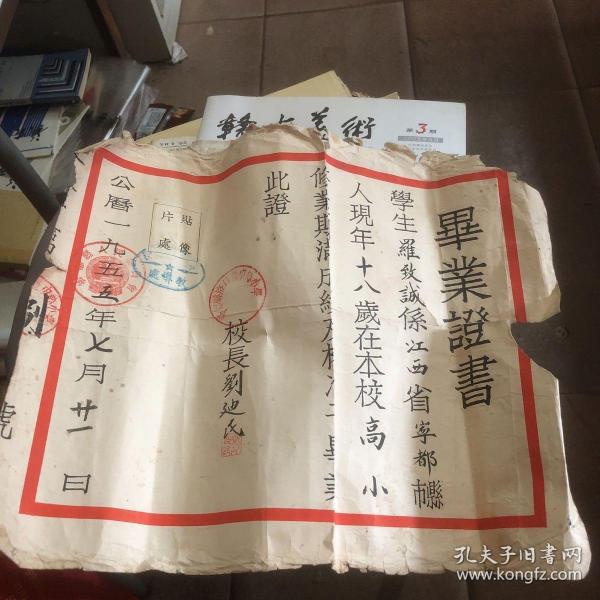 畢業證書
學生羅致誠係江西省寧都市縣
人現年十八歲在本校高小
修業期滿成績及格准予畢業
此證
校長劉迪民
公曆一九五五年七月廿一日
貼像
片處
第3期
美術
孔夫子旧书网
www.kongfz.com